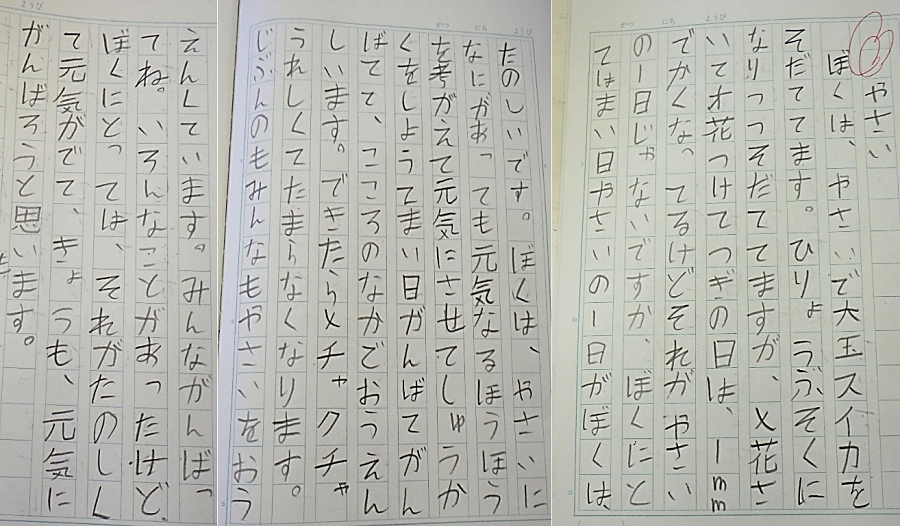 やさい
ぼくは、やさいで大玉スイカを
そだててます。ひりょうぶそくに
なりつつそだててますが、メ花さ
いてオ花つけてつぎの日は、1mm
でかくなってるけどそれがやさい
の一日じゃないですか、ぼくにと
てはまい日やさいの一日がぼくは、
たのしいです。ぼくは、やさいに
なにがあっても元気なるほうほう
を考がえて元気にさせてしゅうか
くをしようてまい日がんばてがん
ばてて、こころのなかでおうえん
しいます。できたらメチャクチャ
うれしくてたまらなくなります。
じぶんのもみんなもやさいをおう
えんしています。みんながんばっ
てね。いろんなことがあったけど
ぼくにとっては、それがたのしく
て元気がでて、きょうも、元気に
がんばろうと思います。